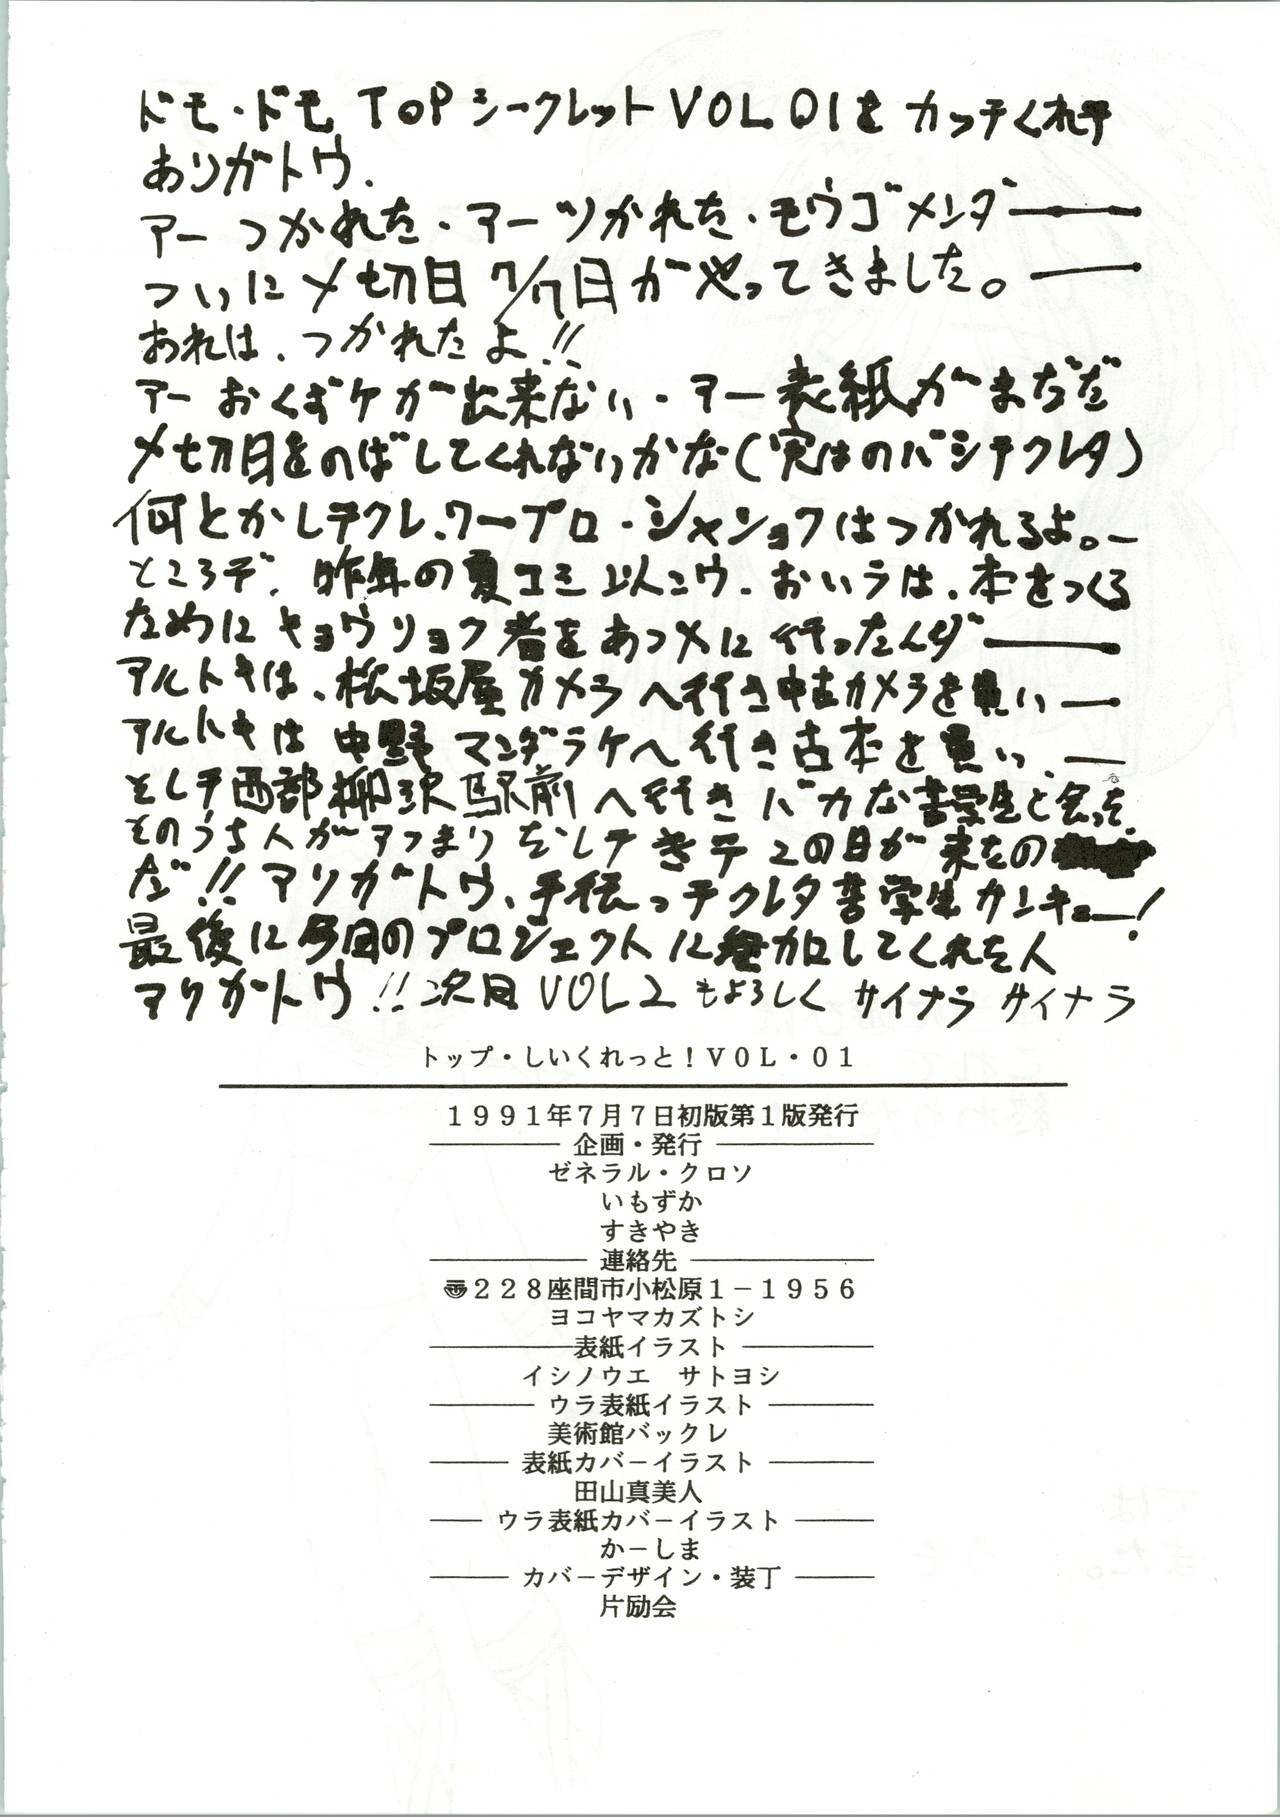 ドモ・ドモ TOPシークレットVOL.01を カッテくれテ
ありガトウ.
アーつかれた・アーツかれた・モウゴメンダ――
ついに〆切日7/7日がやってきました。――
おれは、つかれたよ!!
アーおくずケが出来ない・アー表紙がまだだ
〆切日をのばしてくれないかな(実はのバシテクレタ)
何とかしテクレ、ワープロ・シャショクはつかれるよ。―
ところデ、昨年の夏コミ以コウ、おいラは、本をつくる
ためにキョウリョク者をあつメに行ったんダ――
アルトキは、松坂屋カメラへ行き中古カメラを買い―
アルトキは中野マンダラケへ行き古本を買い、―
そしテ西部柳沢駅前へ行きバカな苦学生と会って、
そのうち人がアつまりをしテきテこの日が来たの
だ!!アリガトウ、手伝っテクレタ苦学生サンキュー!
最後に今回のプロジェクトに参加してくれた人
アリガトウ!!次回VOL2もよろしく サイナラ サイナラ
トップ・しいくれっと!VOL・01
1991年7月7日初版第1版発行
企画・発行
ゼネラル・クロソ
いもずか
すきやき
連絡先
〠228座間市小松原1-1956
ヨコヤマカズトシ
表紙イラスト
イシノウエ サトヨシ
ウラ表紙イラスト
美術館バックレ
表紙カバーイラスト
田山真美人
ウラ表紙カバーイラスト
かーしま
カバーデザイン・装丁
片励会